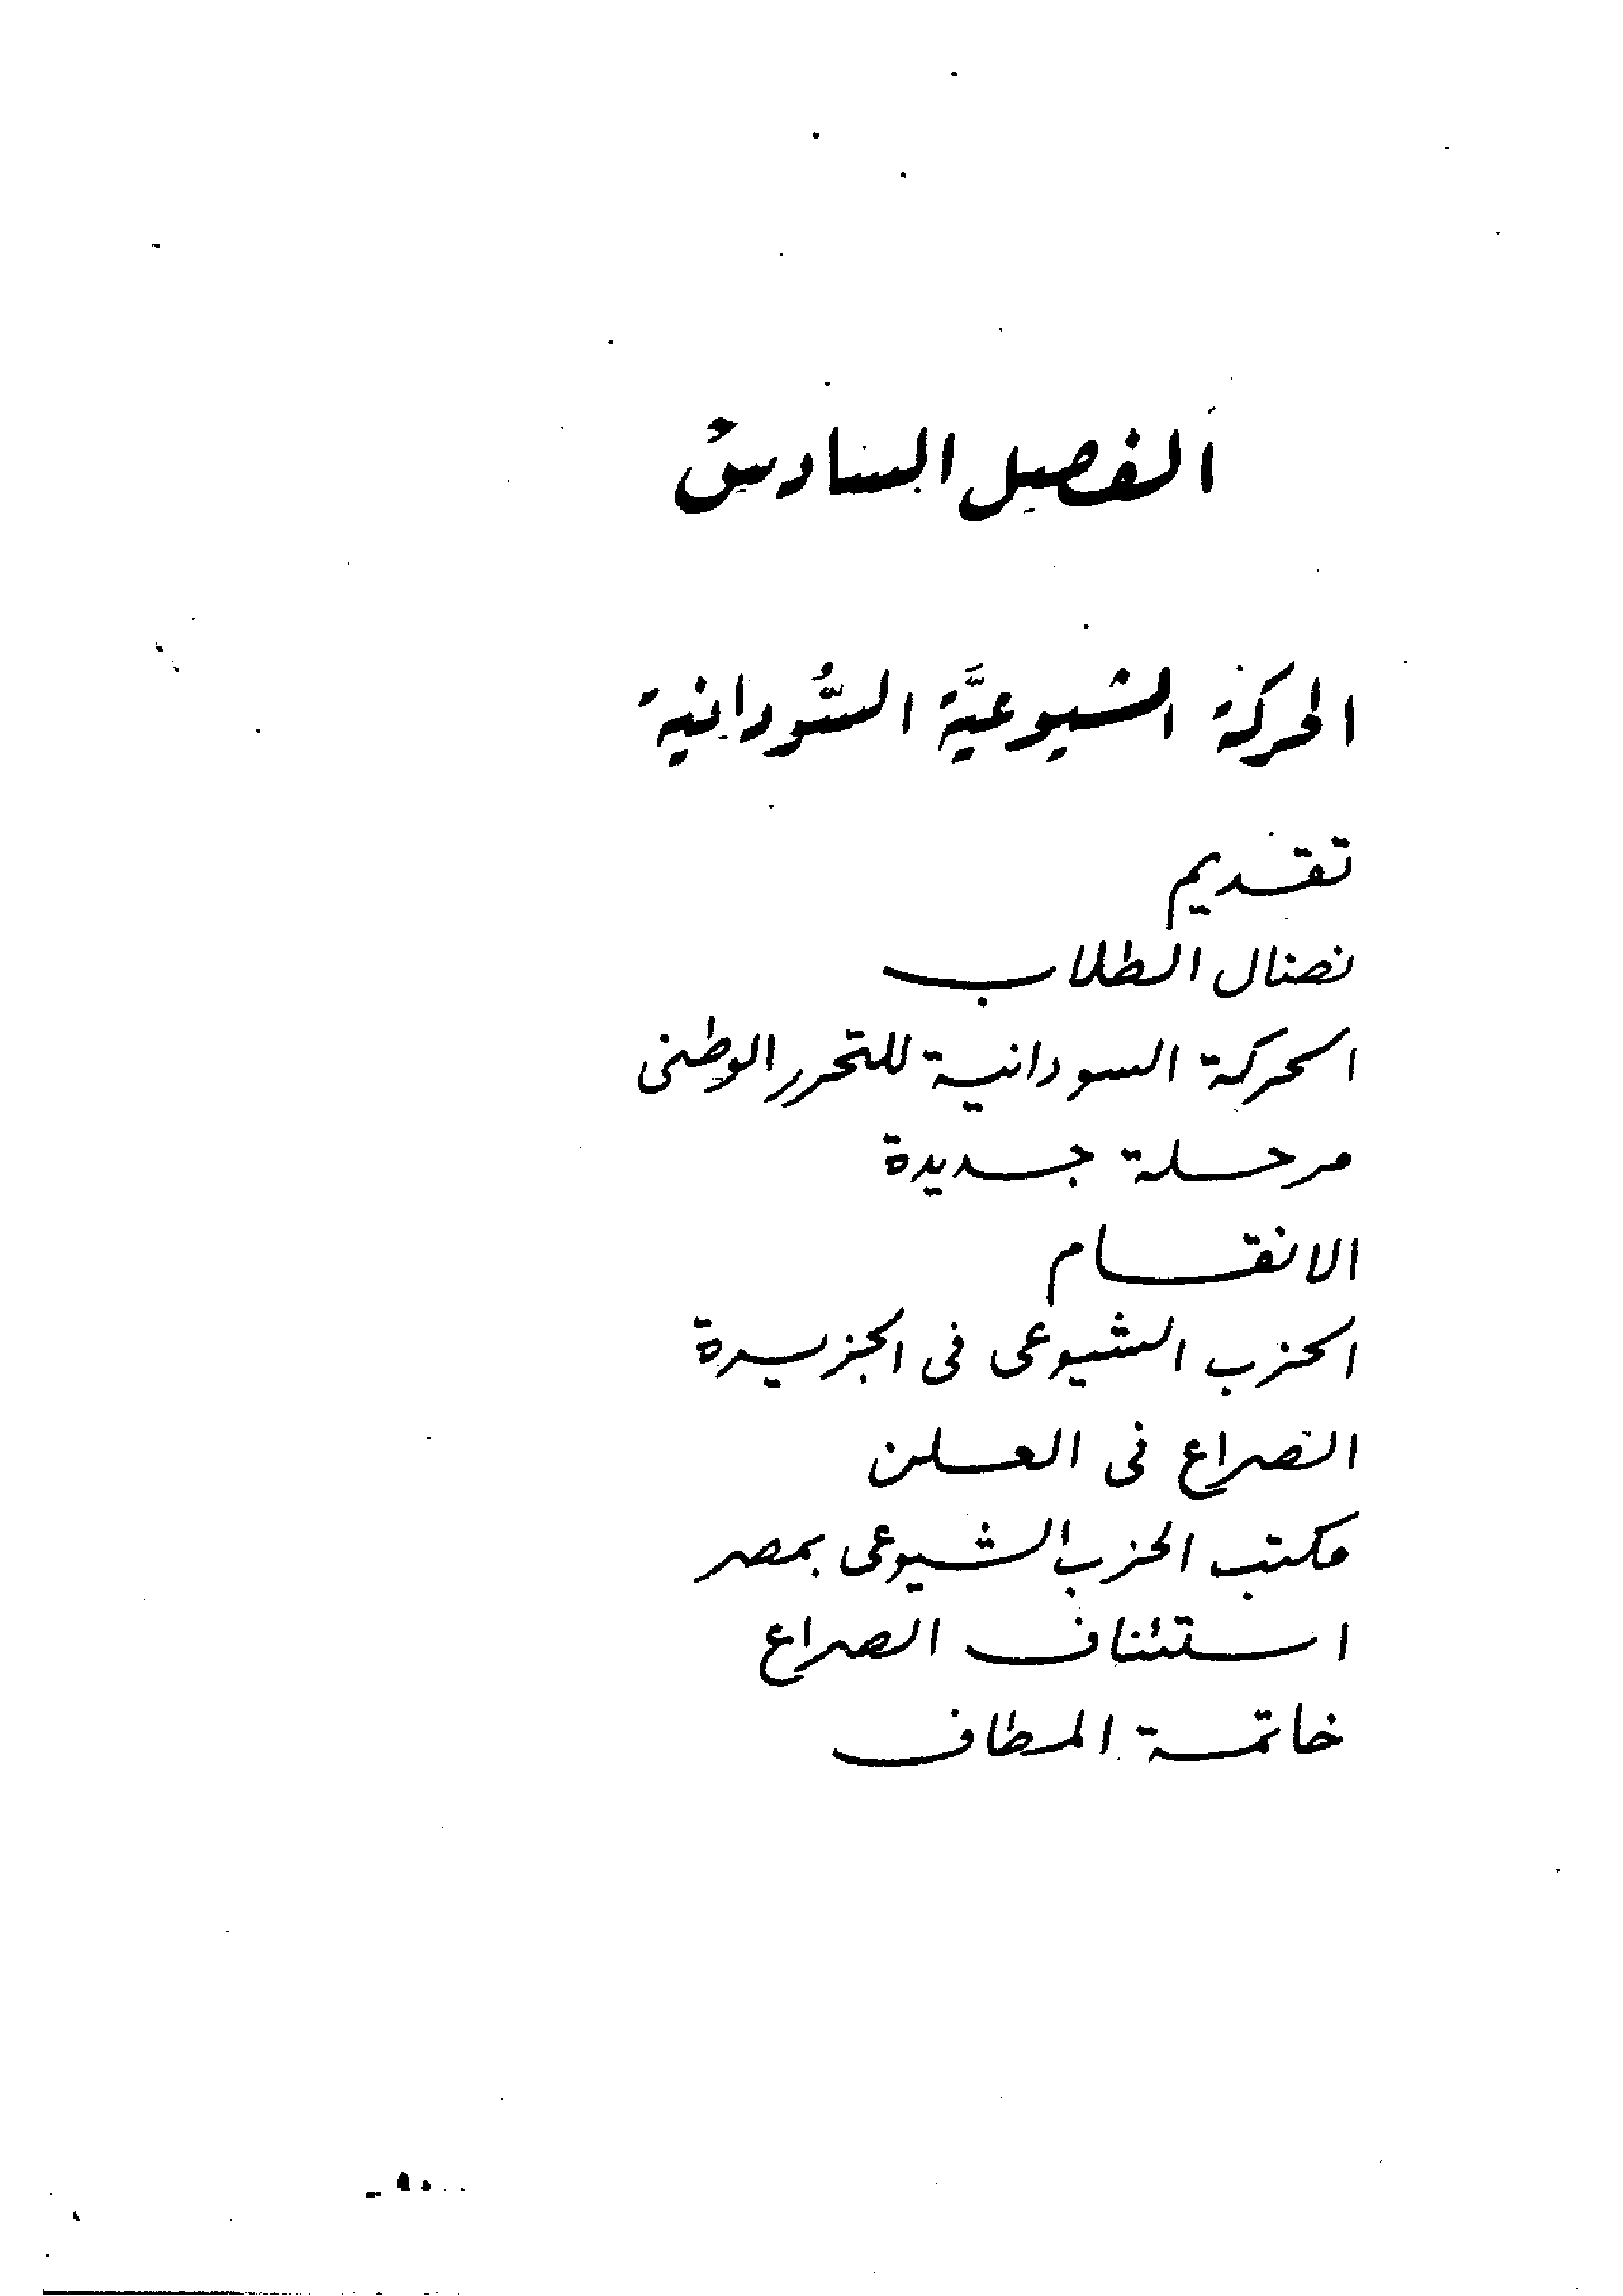 الفصل السادس
الحركة الشيوعيَّة السُّودانية
تقديم
نضال الطلاب
الحركة السودانية للتحرر الوطنى
مرحلة جديدة
الانقسام
الحزب الشيوعى فى الجزيرة
الصراع فى العلن
مكتب الحزب الشيوعى بمصر
استئناف الصراع
خاتمة المطاف